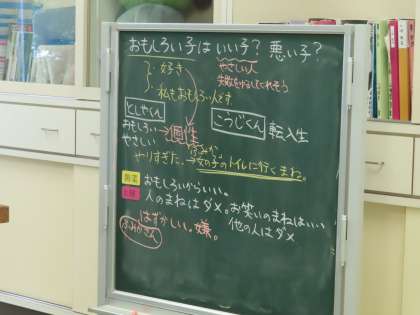 おもしろい子は いい子? 悪い子?
好き
やさしい人
失敗を許してくれそう
私もおもしろい人です
としやくん
こうじくん 転入生
おもしろい→個性
やさしい
ふみか
やりすぎた。→女の子のトイレに行くまね。
おもしろいからいい。
人のまねはダメ。お笑いのまねはいい
他の人はダメ
はずかしい。嫌。
ふみかさん